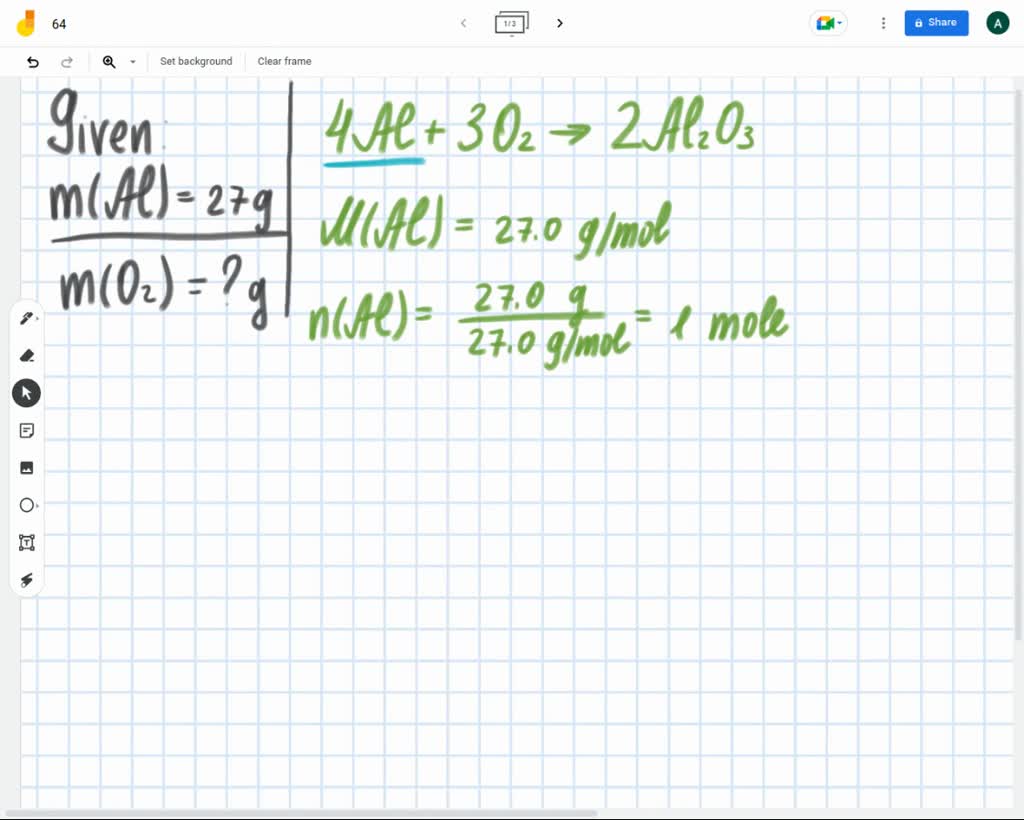 64
1/3
Share
A
Set background
Clear frame
Given:
m(Al) = 27g
m(O₂) = ? g
4Al + 3O₂ → 2Al₂O₃
M(Al) = 27.0 g/mol
n(Al) = 27.0 g / 27.0 g/mol = 1 mole